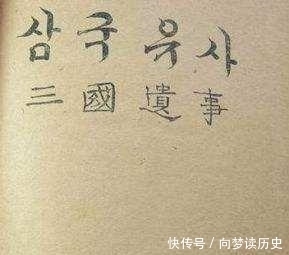 삼국유사
三國遺事
快传号/向梦读历史